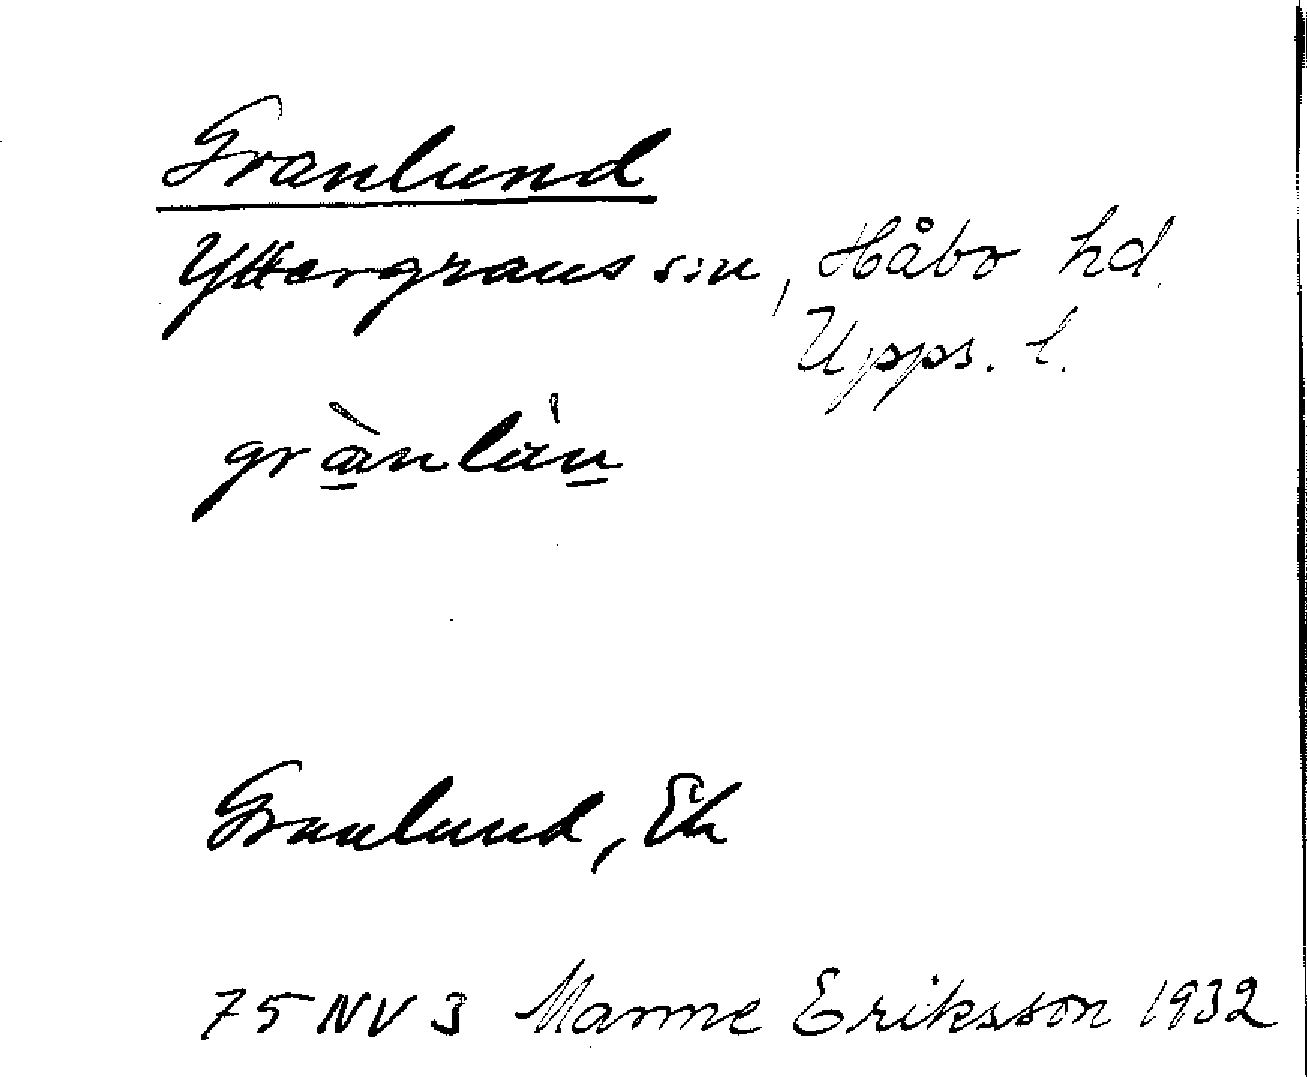 Granlund
Yttergrans sn, Håbo hd.
Upps. l.
Granlund, Ek
75 NV 3 Manne Eriksson 1932